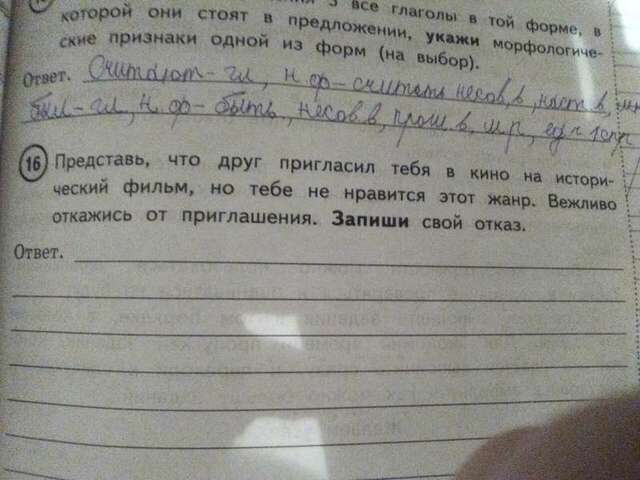 3 все глаголы в той форме, в
которой они стоят в предложении, укажи морфологиче-
ские признаки одной из форм (на выбор).
Ответ. Считают - гл, н ф - считать несов, в, наст в,
был - гл, н. ф - быть, несов в, прош в, м.р, ед ч 1спр
16 Представь, что друг пригласил тебя в кино на истори-
ческий фильм, но тебе не нравится этот жанр. Вежливо
откажись от приглашения. Запиши свой отказ.
Ответ.